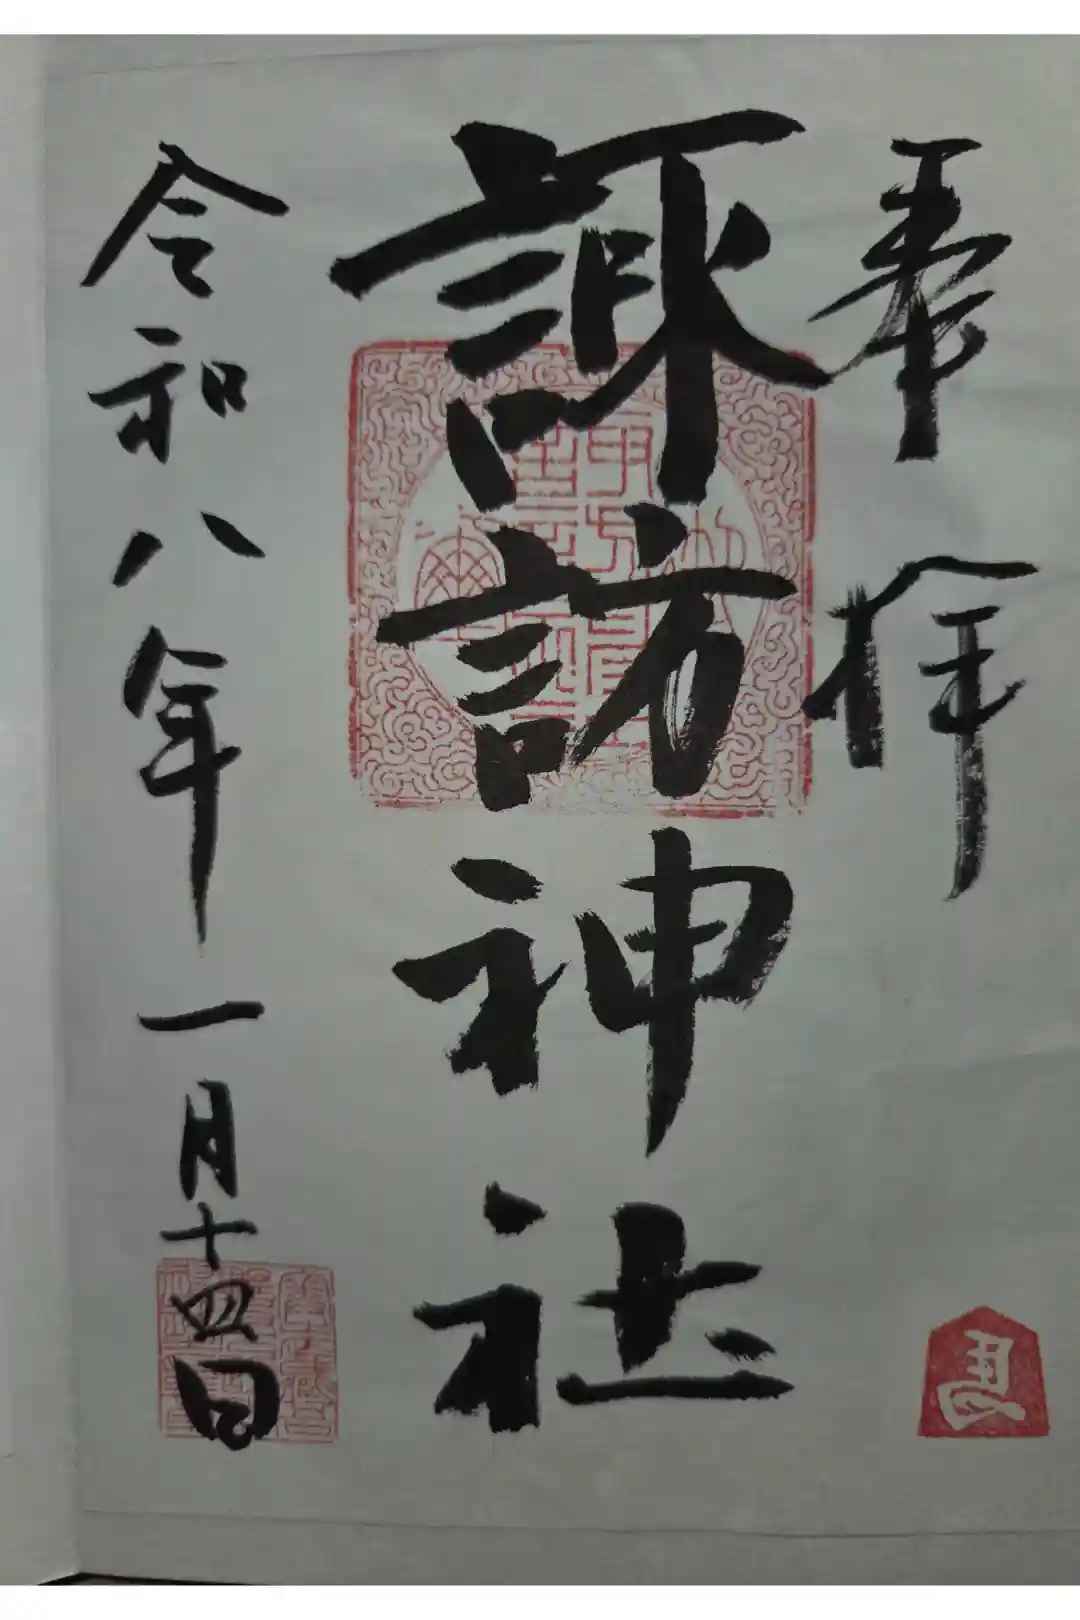 奉拝
諏訪神社
令和八年一月十四日
馬